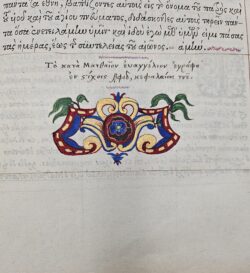 πάντα τὰ ἔθνη, βαπτίζοντες αὐτοὺς εἰς τὸ ὄνομα τοῦ πατρὸς καὶ
τοῦ υἱοῦ καὶ τοῦ ἁγίου πνεύματος, διδάσκοντες αὐτοὺς τηρεῖν πάν-
τα ὅσα ἐνετειλάμην ὑμῖν· καὶ ἰδοὺ ἐγὼ μεθ' ὑμῶν εἰμι πάσας
τὰς ἡμέρας, ἕως τῆς συντελείας τοῦ αἰῶνος. ἀμήν.
Τὸ κατὰ Ματθαῖον εὐαγγέλιον ἐγράφη
ἐν στίχοις κεφαλαίοις